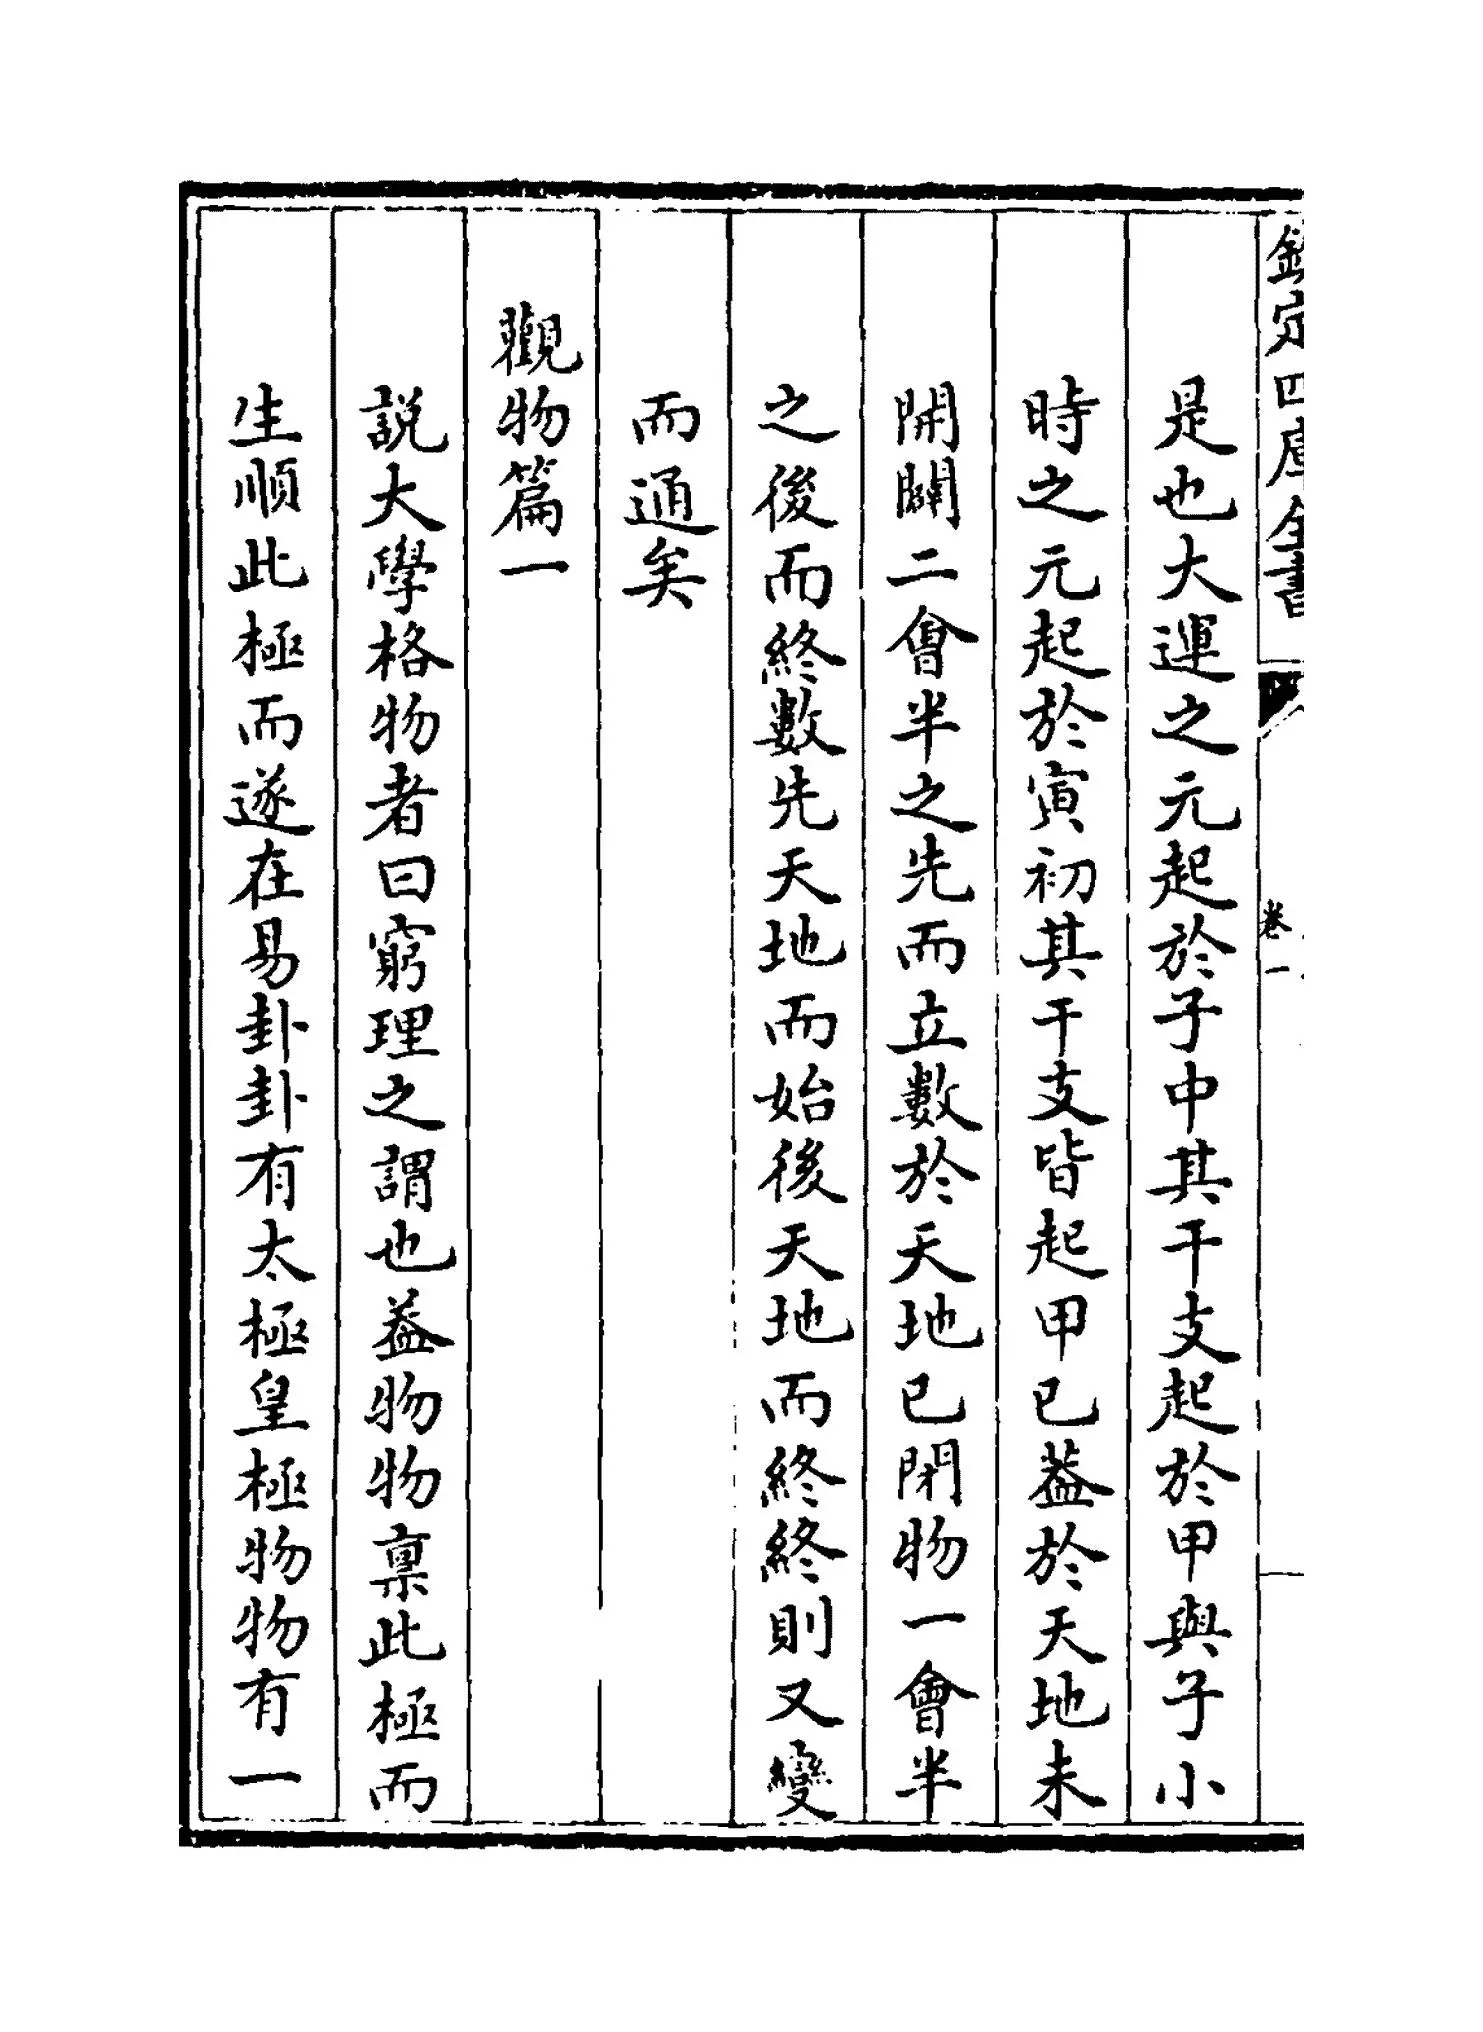 欽定四庫全書
卷一
是也大運之元起於子中其干支起於甲與子小
時之元起於寅初其干支皆起甲已葢於天地未
開闢二會半之先而立數於天地已閉物一會半
之後而終數先天地而始後天地而終終則又變
而通矣
觀物篇一
説大學格物者曰窮理之謂也葢物物禀此極而
生順此極而遂在易卦卦有太極皇極物物有一